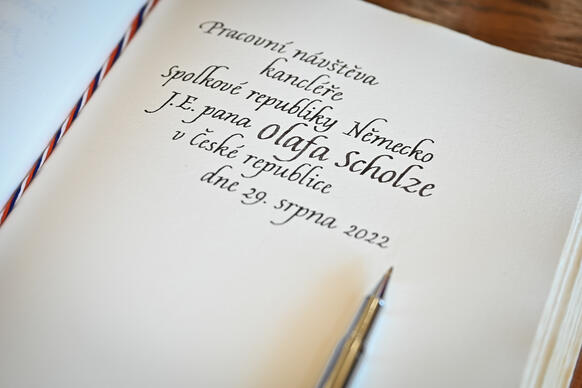 Pracovní návštěva
kancléře
Spolkové republiky Německo
J.E. pana Olafa Scholze
v České republice
dne 29. srpna 2022